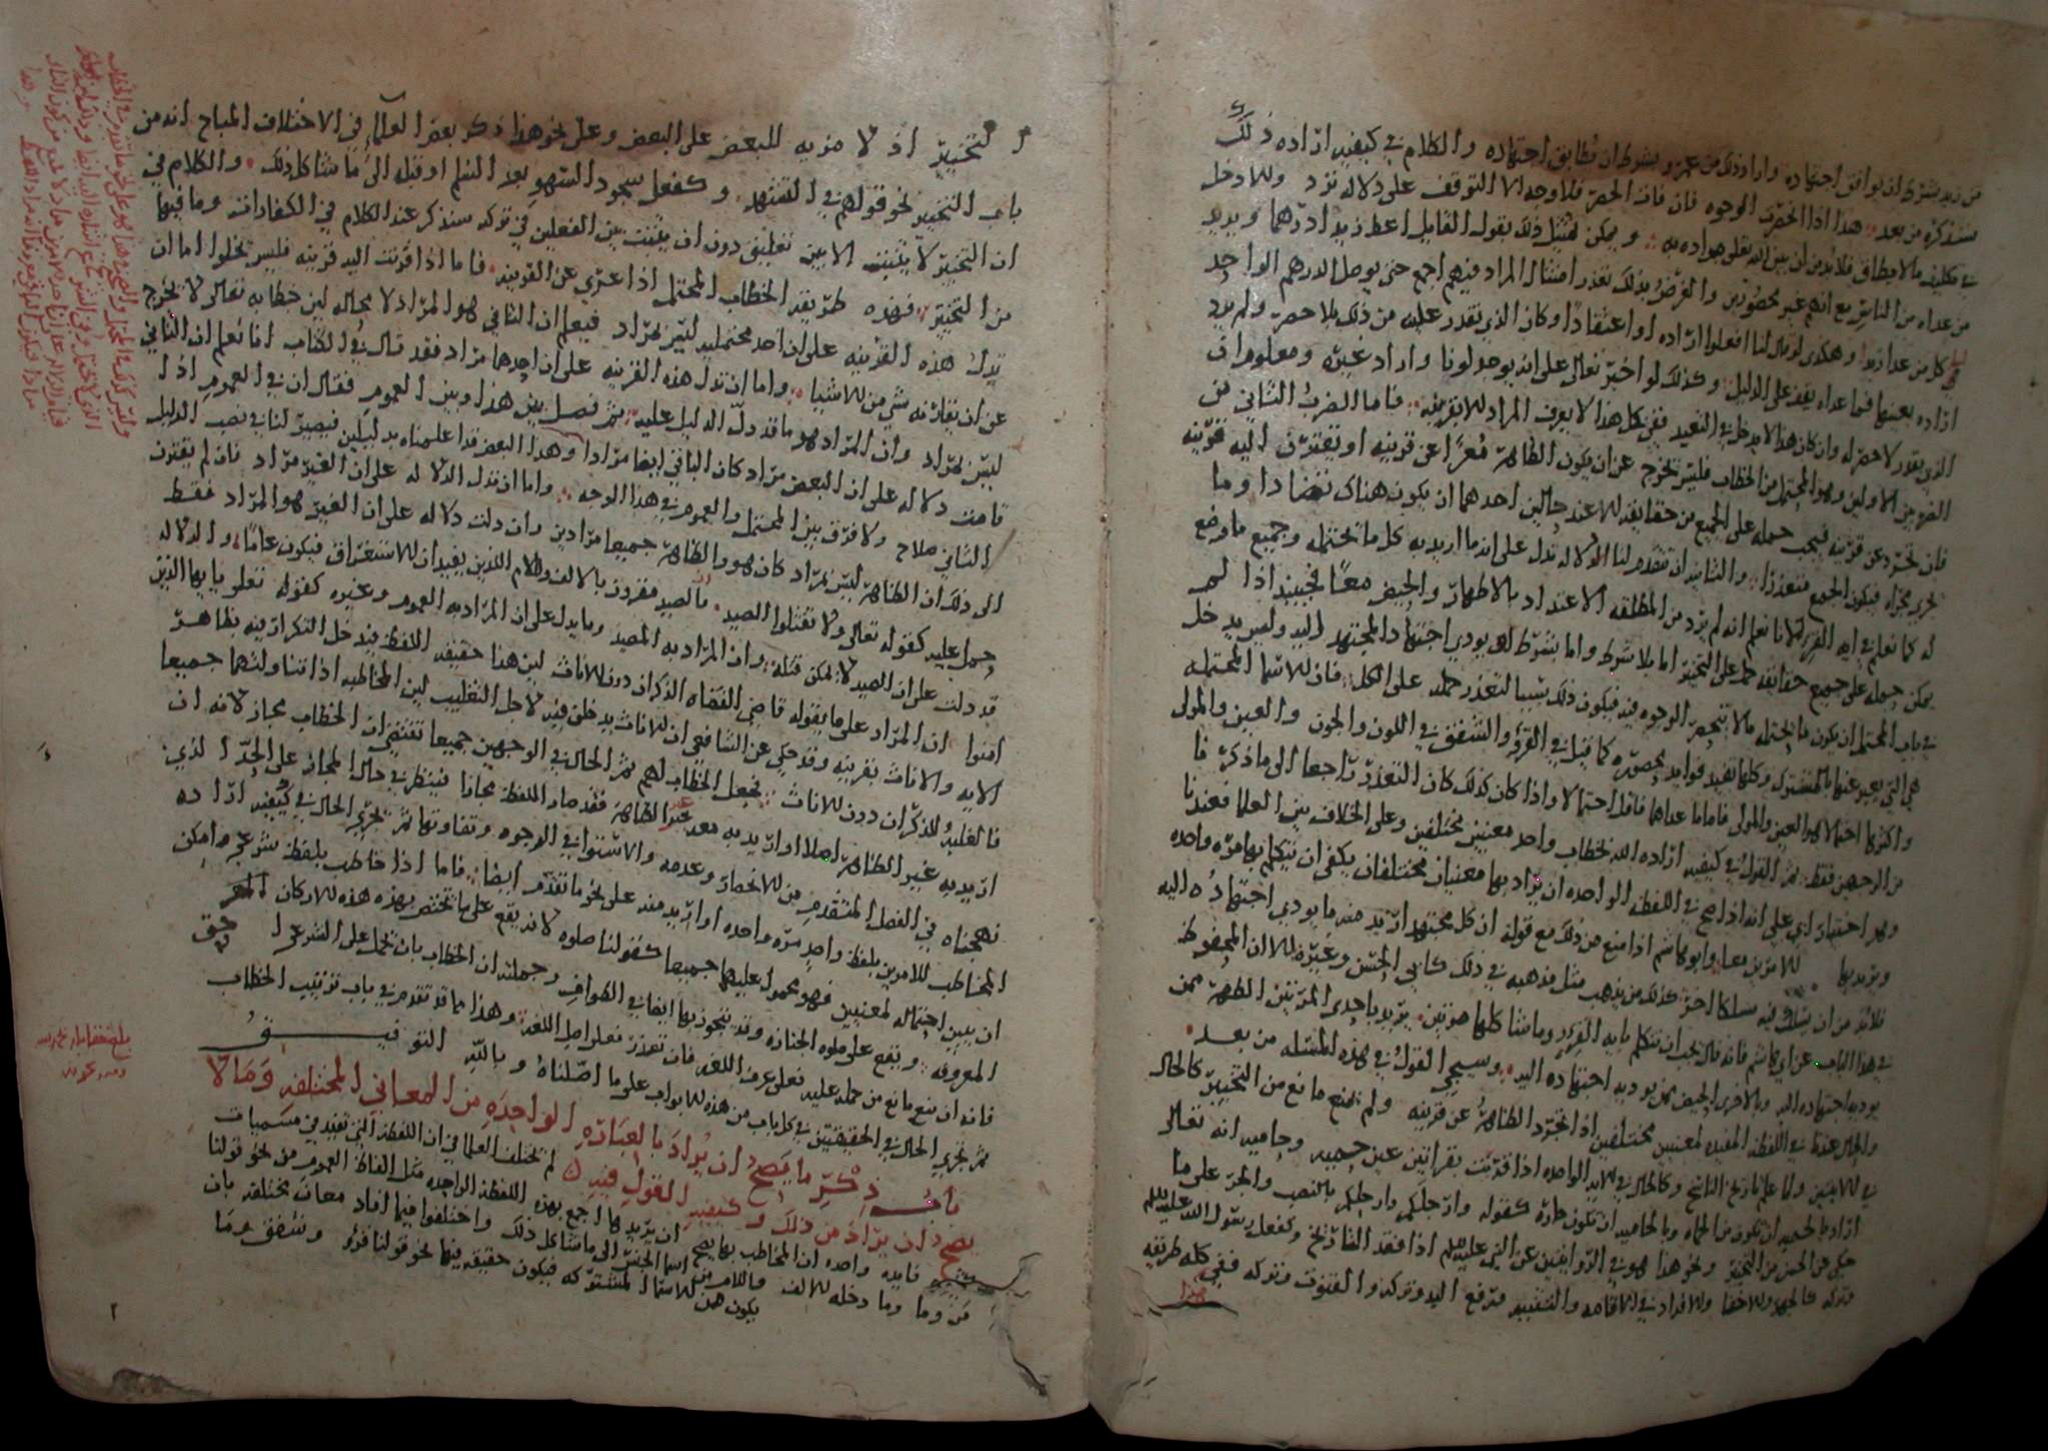 من زيد بشرط ان يوافق اجتهاده وارا ذلك من عمرو بشرط ان يطابق اجتهاده والكلام في كيفيه ارادة ذلك
سنذكره من بعد هذا اذا انحصرت الوجوه فان فات الحصر فلا وجه الا التوقف على دلاله ترد وللا دخل
في تكليف ما لا يطاق فلا بد من ان يبين الله تعلى مراده به ويمكن تمثيل ذلك بقول القايل اعط زيدا درهما ويريد
من عداه من الناس مع انهم غير محصورين والغرض بذلك تعذر امتثال المراد فيهم اجمع حتى يوصل الدرهم الواحد
الى كل من عدا زيد وهكذى لو قال لنا افعلوا اراده او اعتقادا وكان الذي نقدر عليه من ذلك بلا حصر ولم يرد
اراده بعينها فما عداه يقف على الدليل وكذلك لو اخبر تعالى على انه يوجد لونا واراد غيره ومعلوم ان
الذي يقدر لا حصر له وان كان هذا لا يدخل في التعبد ففي كل هذا لا يعرف المراد الا بقرينه فاما الضرب الثاني من
الضربين الاولين وهو المحتمل من الخطاب فليس يخرج عن ان يكون الظاهر معرا عن قرينه او تقترن اليه قرينه
فان تجرد عن قرينه فيجب حمله على الجميع من حقايقه الا عند حالين احدهما ان يكون هناك تضادا وما
يجري مجراه فيكون الجمع متعذرا والثاني ان تتقدم لنا الدلاله تدل على انه ما اريد به كل ما تحتمله وجميع ما وضع
له كما نعلم في ايه القرء لانا نعلم انه لم يرد من المطلقه الاعتداد بالاطهار والحيض معا فحينيذ اذا لم
يمكن حمله على جميع حقايقه حمل على التخيير اما بلا شرط واما بشرط ان يودي اجتهاد المجتهد اليه وليس يدخل
في باب المحتمل ان يكون ما يحتمله مما لا تنحصر الوجوه فيه فيكون ذلك سببا لتعذر حمله على الكل فان الاسما المحتمله
هي التي يعبر عنها بالمشترك وكلها تفيد فوايد محصوره كما قيل في القرء والشفق في اللون والجون والعين والمولى
واكثرها احتمالا هو العين والمولى فاما ما عداهما فاقل احتمالا واذا كان كذلك كان التعذر راجعا الى ما ذكره فا
من الوجهين فقط ثم القول في كيفيه اراده الله بخطاب واحد معنيين مختلفين وعلى الخلاف بين العلما فعندنا
وهو اختيار ابي علي انه اذا صح في اللفظه الواحده ان يراد بها معنيان مختلفان يكفي ان يتكلم بها مره واحده
ويريد بها الامرين معا وابو هاشم اذا منع من ذلك مع قوله ان كل مجتهد اريد منه ما يودي اجتهاده اليه
فلابد من ان يسلك فيه مسلكا اخر وكذلك من يذهب مثل مذهبه في ذلك كابي الحسن وغيره الا ان المحفوظ
في هذا الباب عن ابي هاشم فانه قال يجب ان تتكلم بايه القرء وما شاكلها مرتين يريد باحدى المرتين الطهر ممن
يوديه اجتهاده اليه وبالاخرى الحيض ممن يوديه اجتهاده اليه وسيجي القول في هذه المسئله من بعد
والحال عندنا في اللفظه المفيده لمعنيين مختلفين اذا تجرد الظاهر عن قرينه ولم يمنع مانع من التخيير كالحال
في الايتين ولما علم تاريخ الناسخ وكالحال في الايه الواحده اذا قريت بقراتين عين حميه وحاميه انه تعالى
اراد بالحميه ان يكون من الحماه وبالحاميه ان تكون حاره كقوله وارجلكم وارجلكم بالنصب والجر على ما
حكي عن الحسن من التخيير ونحو هذا هو في الروايتين عن النبي عليه السلام اذا فقد التاريخ وكفعل رسول الله عليه السلم
وتركه كالجهر والاخفا والافراد في الاقامه والتثنيه ورفع اليد وتركه والقنوت وتركه ففي كله طريقه
هذا
التخيير اذ لا مزيه للبعض على البعض وعلى نحو هذا ذكر بعض العلما في الاختلاف المباح انه من
باب التخيير نحو قولهم في التشهد وكفعل سجود السهو بعد السلم او قبله الى ما شاكل ذلك والكلام في
ان التخيير لا يثبت الا بين تعليق دون ان يثبت بين الفعلين في تركه سنذكر عند الكلام في الكفارات وما فيها
من التخيير فهذه طريقه الخطاب المحتمل اذا عري عن القرينه فاما اذا قرنت اليه قرينه فليس يخلوا اما ان
تدل هذه القرينه على ان احد محتمليه ليس بمراد فيعلم ان الثاني هو المراد لا محاله لين خطابه تعالى لا يخرج
عن ان يفاد به شي من الاشيا واما ان تدل هذه القرينه على ان احدهما مراد فقد قال في الكتاب انا نعلم ان الثاني
ليس بمراد وان المراد هو ما قد دل الدليل عليه ثم فصل بين هذا وبين العموم فقال ان في العموم اذا
قامت دلاله على ان البعض مراد كان الباقي ايضا مرادا وهذا البعض قد علمناه بدليلين فيصير لنا في نصب الدليل
الثاني صلاح ولا فرق بين المحتمل والعموم في هذا الوجه واما ان تدل الدلاله على ان الغير مراد فان لم يقترن
الى ذلك ان الظاهر ليس بمراد كان هو والظاهر جميعا مرادين وان دلت دلاله على ان الغير هو المراد فقط
حمل عليه كقوله تعالى ولا تقتلوا الصيد فالصيد مقرون بالالف واللام اللذين يفيدان الاستغراق فيكون عاما والدلاله
قد دلت على ان الصيد لا يمكن قتله وان المراد به المصيد وما يدل على ان المراد به العموم وغيره كقوله تعلى يا ايها الذين
امنوا ان المراد على ما يقوله قاضي القضاه الذكران دون الاناث لين هذا حقيقه اللفظ فيدخل الذكران فيه بظاهر
الايه والاناث بقرينه وقد حكي عن الشافعي ان الاناث يدخلن فيه لاجل التغليب لين المخاطبه اذا تناولتهما جميعا
فالغلبه للذكران دون الاناث فجعل الخطاب لهم ثم الحال في الوجهين جميعا تقتضي ان الخطاب مجاز لانه ان
اريد به غير الظاهر اصلا او اريد به معه غير الظاهر فقد صار اللفظ مجازا فينظر في حال المجاز على الحد الذي
نهجناه في الفصل المتقدم من الانحصار وعدمه والاستوا في الوجوه وتفاوتها ثم يجري الحال في كيفيه اراده
المخاطب للامرين بلفظ واحد مره واحده او اريد منه على نحو ما تقدم ايضا فاما اذا خاطب بلفظ شرعي وامكن
ان يبين احتماله لمعنيين فهو محمول عليهما جميعا كقولنا صلوه لانه يقع على ما تختص بهذه هذه الاركان
المعروفه ويقع على صلوه الجنازه وقد يتجوز بها ايضا في الطواف وجملته ان الخطاب بان تحمل على الشرعي احق
فانه ان منع مانع من حمله عليه فعلى عرف اللغه فان تعذر فعلى اصل اللغه وهذا مما قد تقدم في باب ترتيب الخطاب
ثم يجري الحال في الحقيقتين في كل باب من هذه الابواب على ما اصلناه وبالله التوفيق
باب ذكر ما يصح ان يراد بالعباره الواحده من المعاني المختلفه وما لا
يصح ان يراد من ذلك وكيفيه القول فيه لم تختلف العلما في ان اللفظه التي تفيد في مسميات
فايده واحده ان المخاطب بها يصح ان يريدها اجمع بهذه اللفظه الواحده مثل الفاظ العموم من نحو قولنا
من وما وما دخله الالف واللام من اسما الجنس الى ما شاكل ذلك واختلفوا فيما افاد معان مختلفه بان
يكون من الاسما المشتركه فيكون حقيقه فيها نحو قولنا قرء وشفق وما